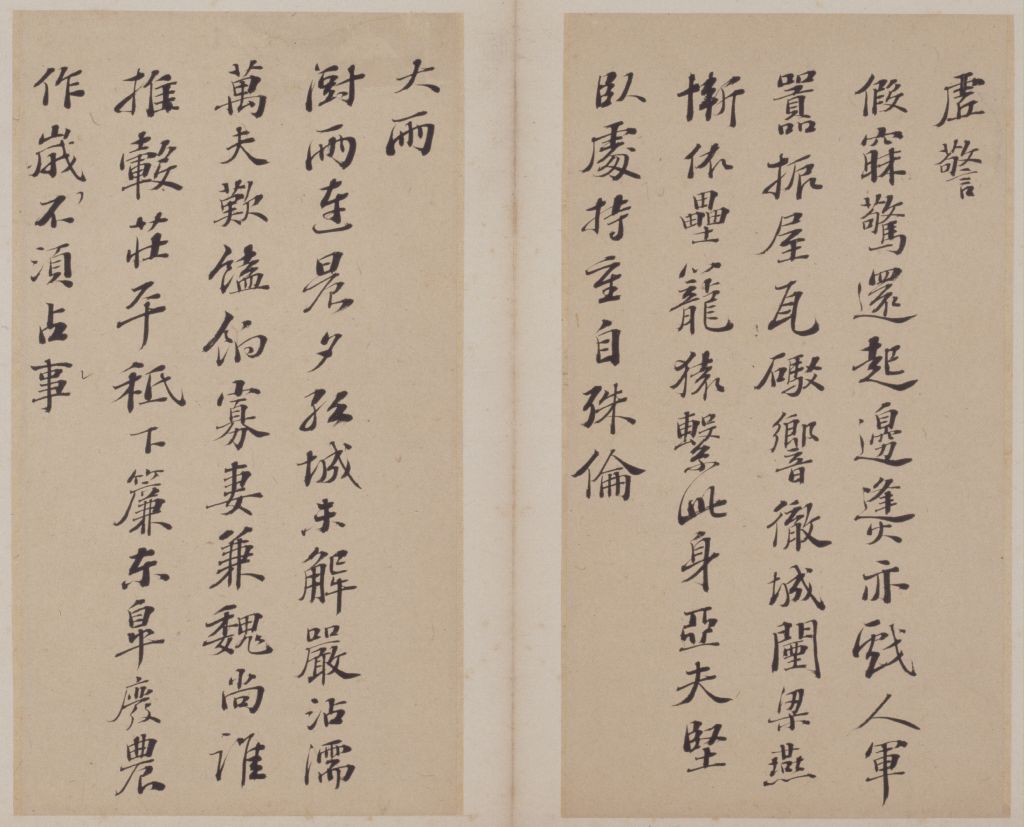 虛警
假寐驚還起邊熢亦戲人軍
囂振屋瓦礮響徹城闉梁燕
慚依壘籠猿繫此身亞夫堅
臥處持重自殊倫
大雨
澍雨連晨夕孤城未解嚴沾濡
萬夫歎饁餉寡妻兼魏尚誰
推轂莊平秪下簾東皋廢農
作歲不須占事